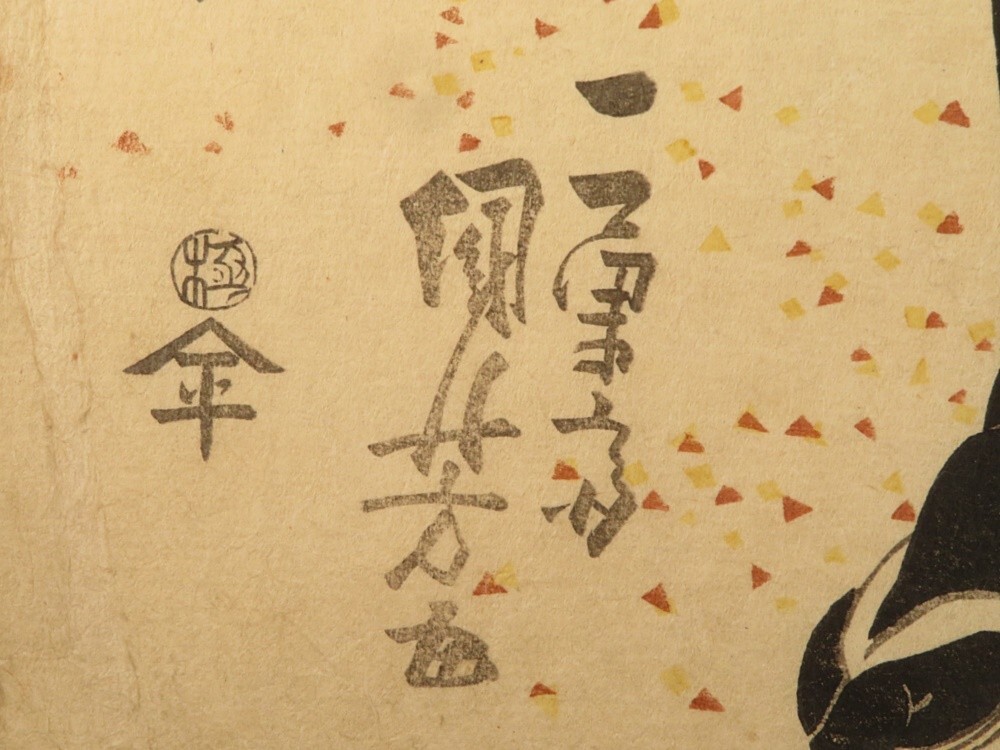 一勇斎
国芳画
極
平